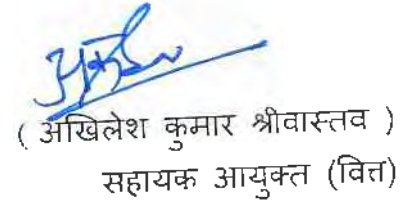 ( अखिलेश कुमार श्रीवास्तव )
सहायक आयुक्त (वित्त)